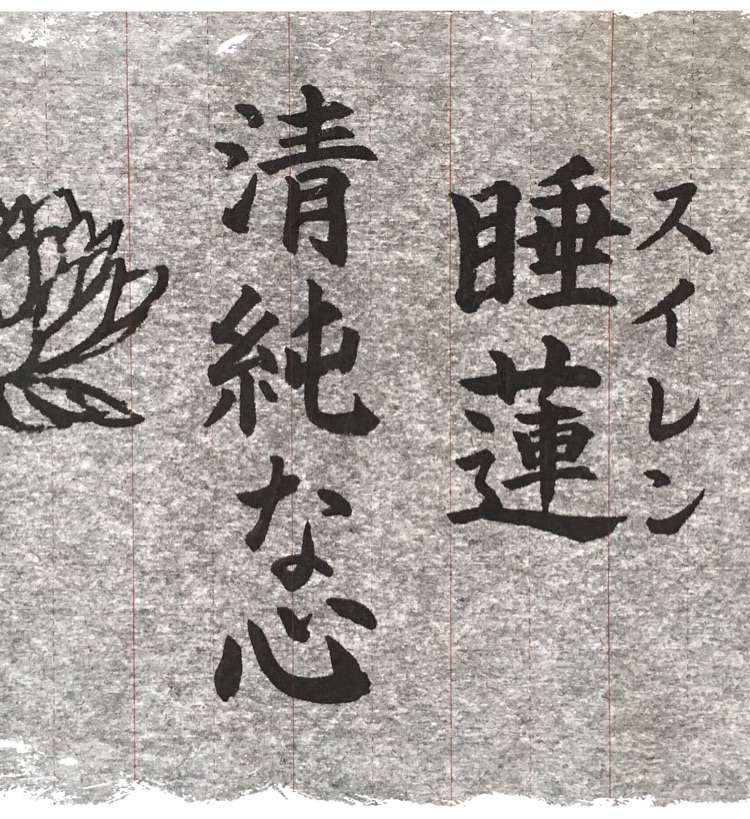 スイレン
睡蓮
清純な心